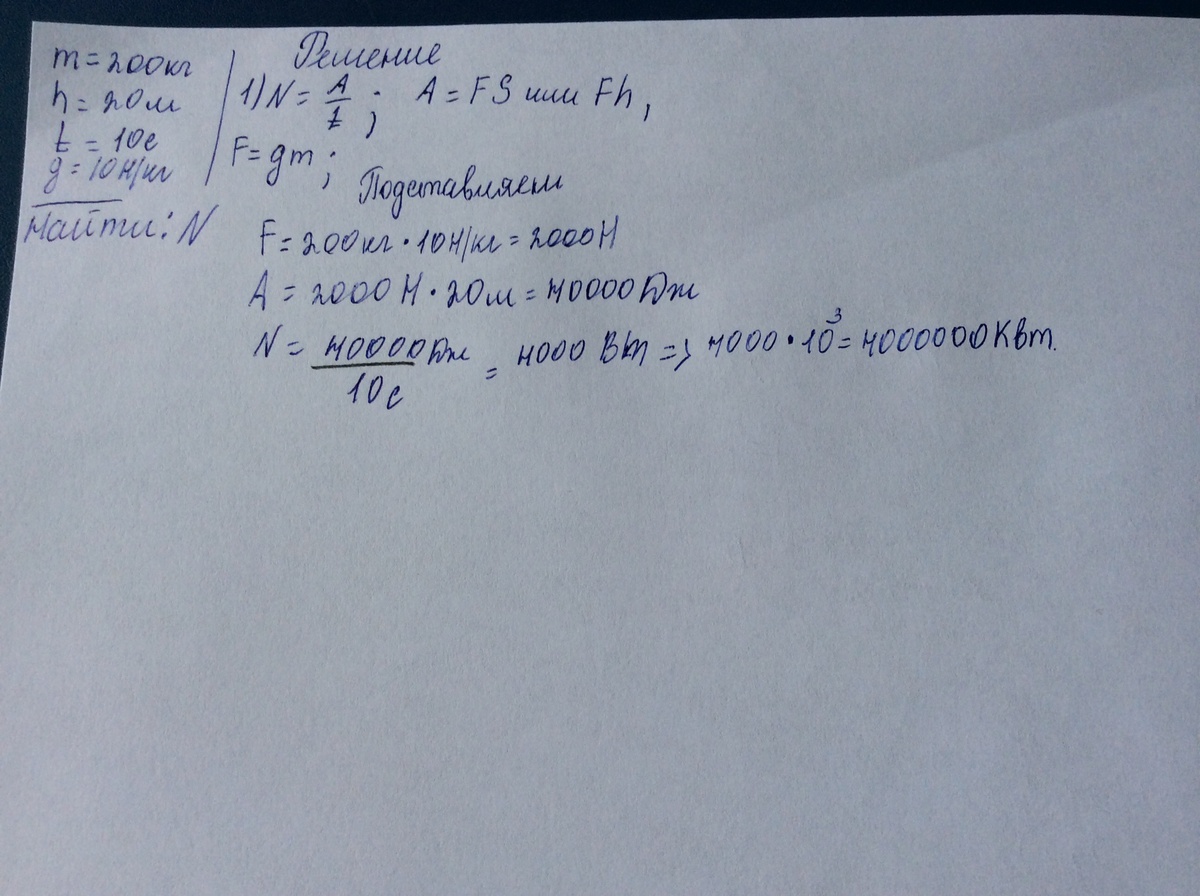 m = 200кг
h = 20м
t = 10с
g = 10Н/кг
Найти: N
Решение
1) N = A/t ; A = FS или Fh,
F = gm ;
Подставляем
F = 200кг · 10Н/кг = 2000Н
A = 2000Н · 20м = 40000Дж
N = 40000Дж/10с = 4000 Вт => 4000 · 10³ = 4000000Квт.